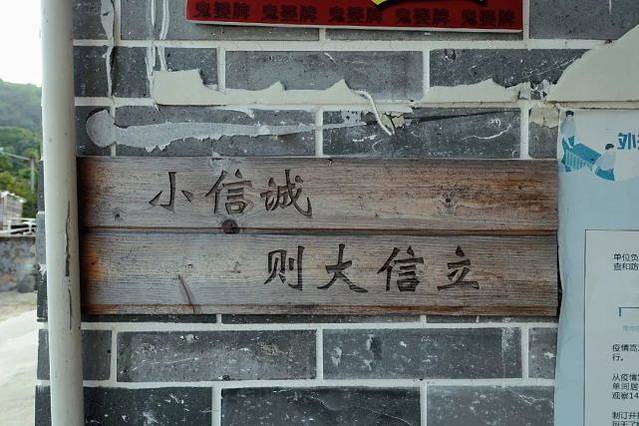 鬼婆牌 鬼婆牌 鬼婆牌 鬼婆牌 鬼婆牌
小信诚
则大信立
外
单位负
查和防
疫情高
行。
从疫情
单间居
观察14
制订并